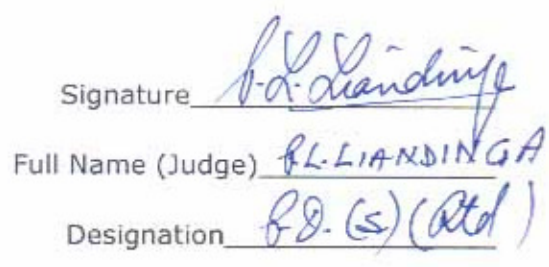 Signature P.L. Liandinga
Full Name (Judge) P.L. LIANDINGA
Designation (s) (Rtd)